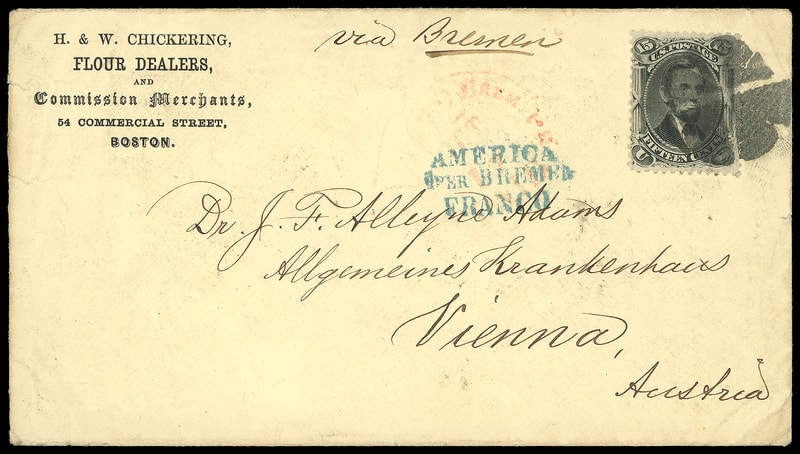 H. & W. CHICKERING,
FLOUR DEALERS,
AND
Commission Merchants,
54 COMMERCIAL STREET,
BOSTON.
via Bremen
15
U.S. POSTAGE
FIFTEEN CENTS
U
BREM. PK
AMERICA
PER BREMEN
FRANCO
Dr. J. F. Alleyne Adams
Allgemeines Krankenhaus
Vienna,
Austria